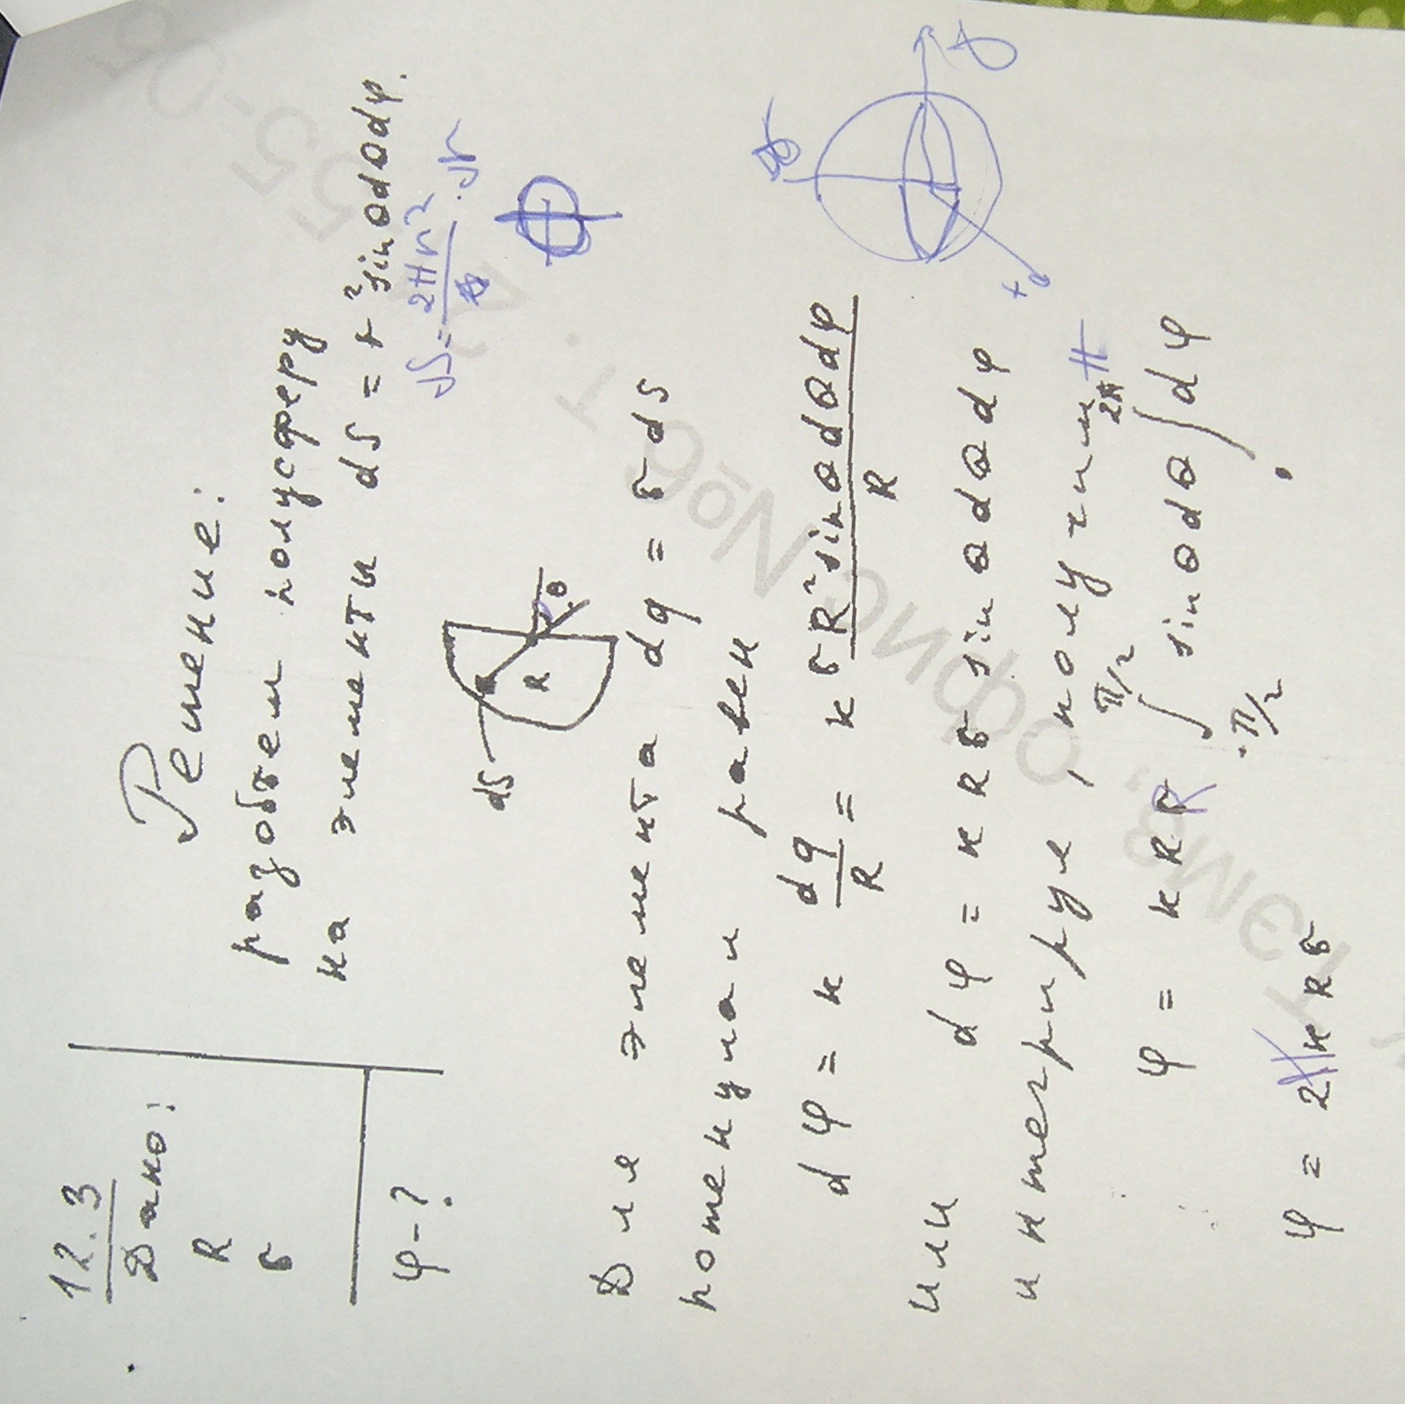 12.3
Дано:
R
σ
φ-?
Решение:
разобьем полусферу
на элементы dS = r² sinθdθdφ.
dS = 2πr² · dr
dS
R
θ
Для элемента dq = σ dS
потенциал равен
dφ = к dq/R = к σ R² sinθdθdφ/R
или dφ = к R σ sin θ dθ dφ
интегрируя, получим
φ = к R σ ∫ sinθdθ ∫ dφ
π/2
-π/2
2π
π
φ = 2π к R σ
x
y
ТЭМЗ, офис №6 т.
55-05